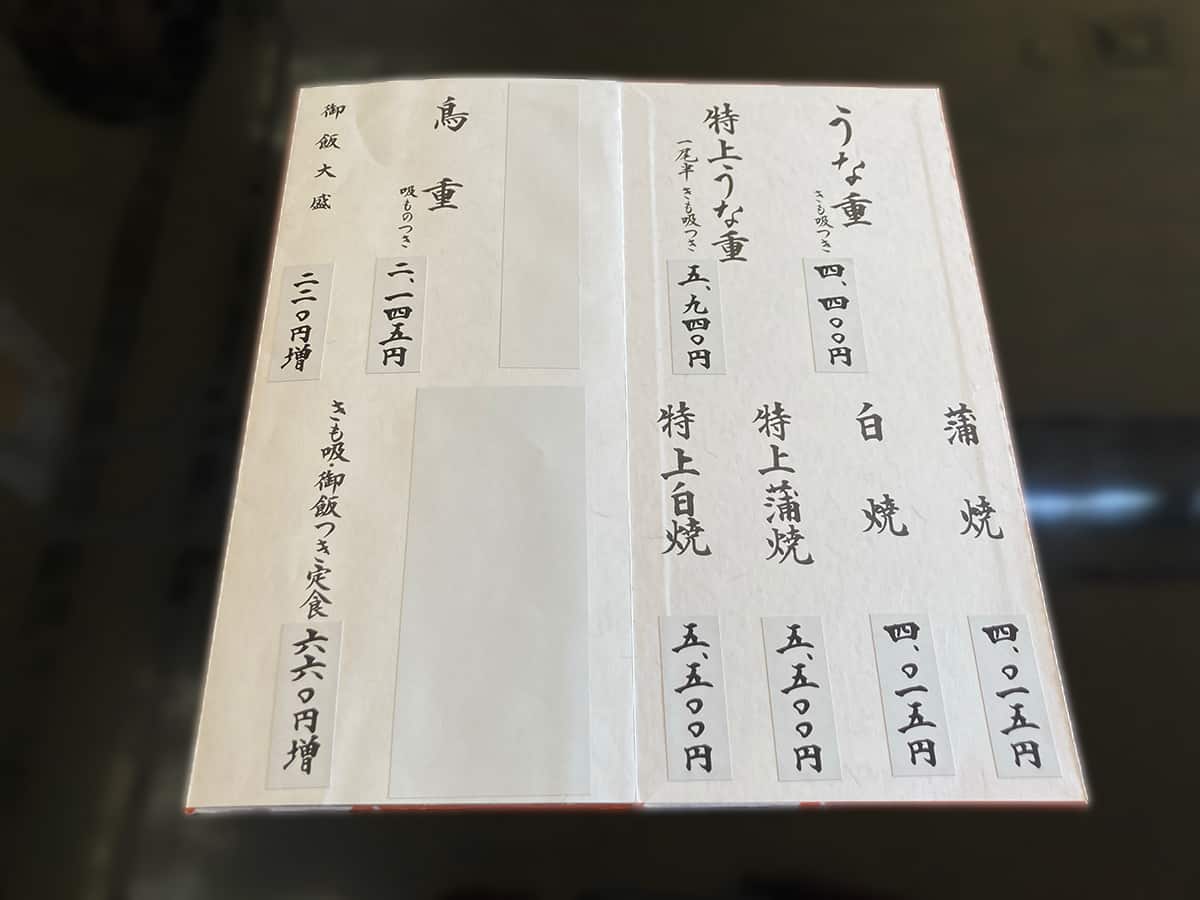 うな重
きも吸つき
四、四〇〇円
特上うな重
一尾半 きも吸つき
五、九四〇円
蒲焼
四、〇一五円
白焼
四、〇一五円
特上蒲焼
五、五〇〇円
特上白焼
五、五〇〇円
鳥重
吸ものつき
二、一四五円
御飯大盛
二二〇円増
きも吸・御飯つき定食
六六〇円増